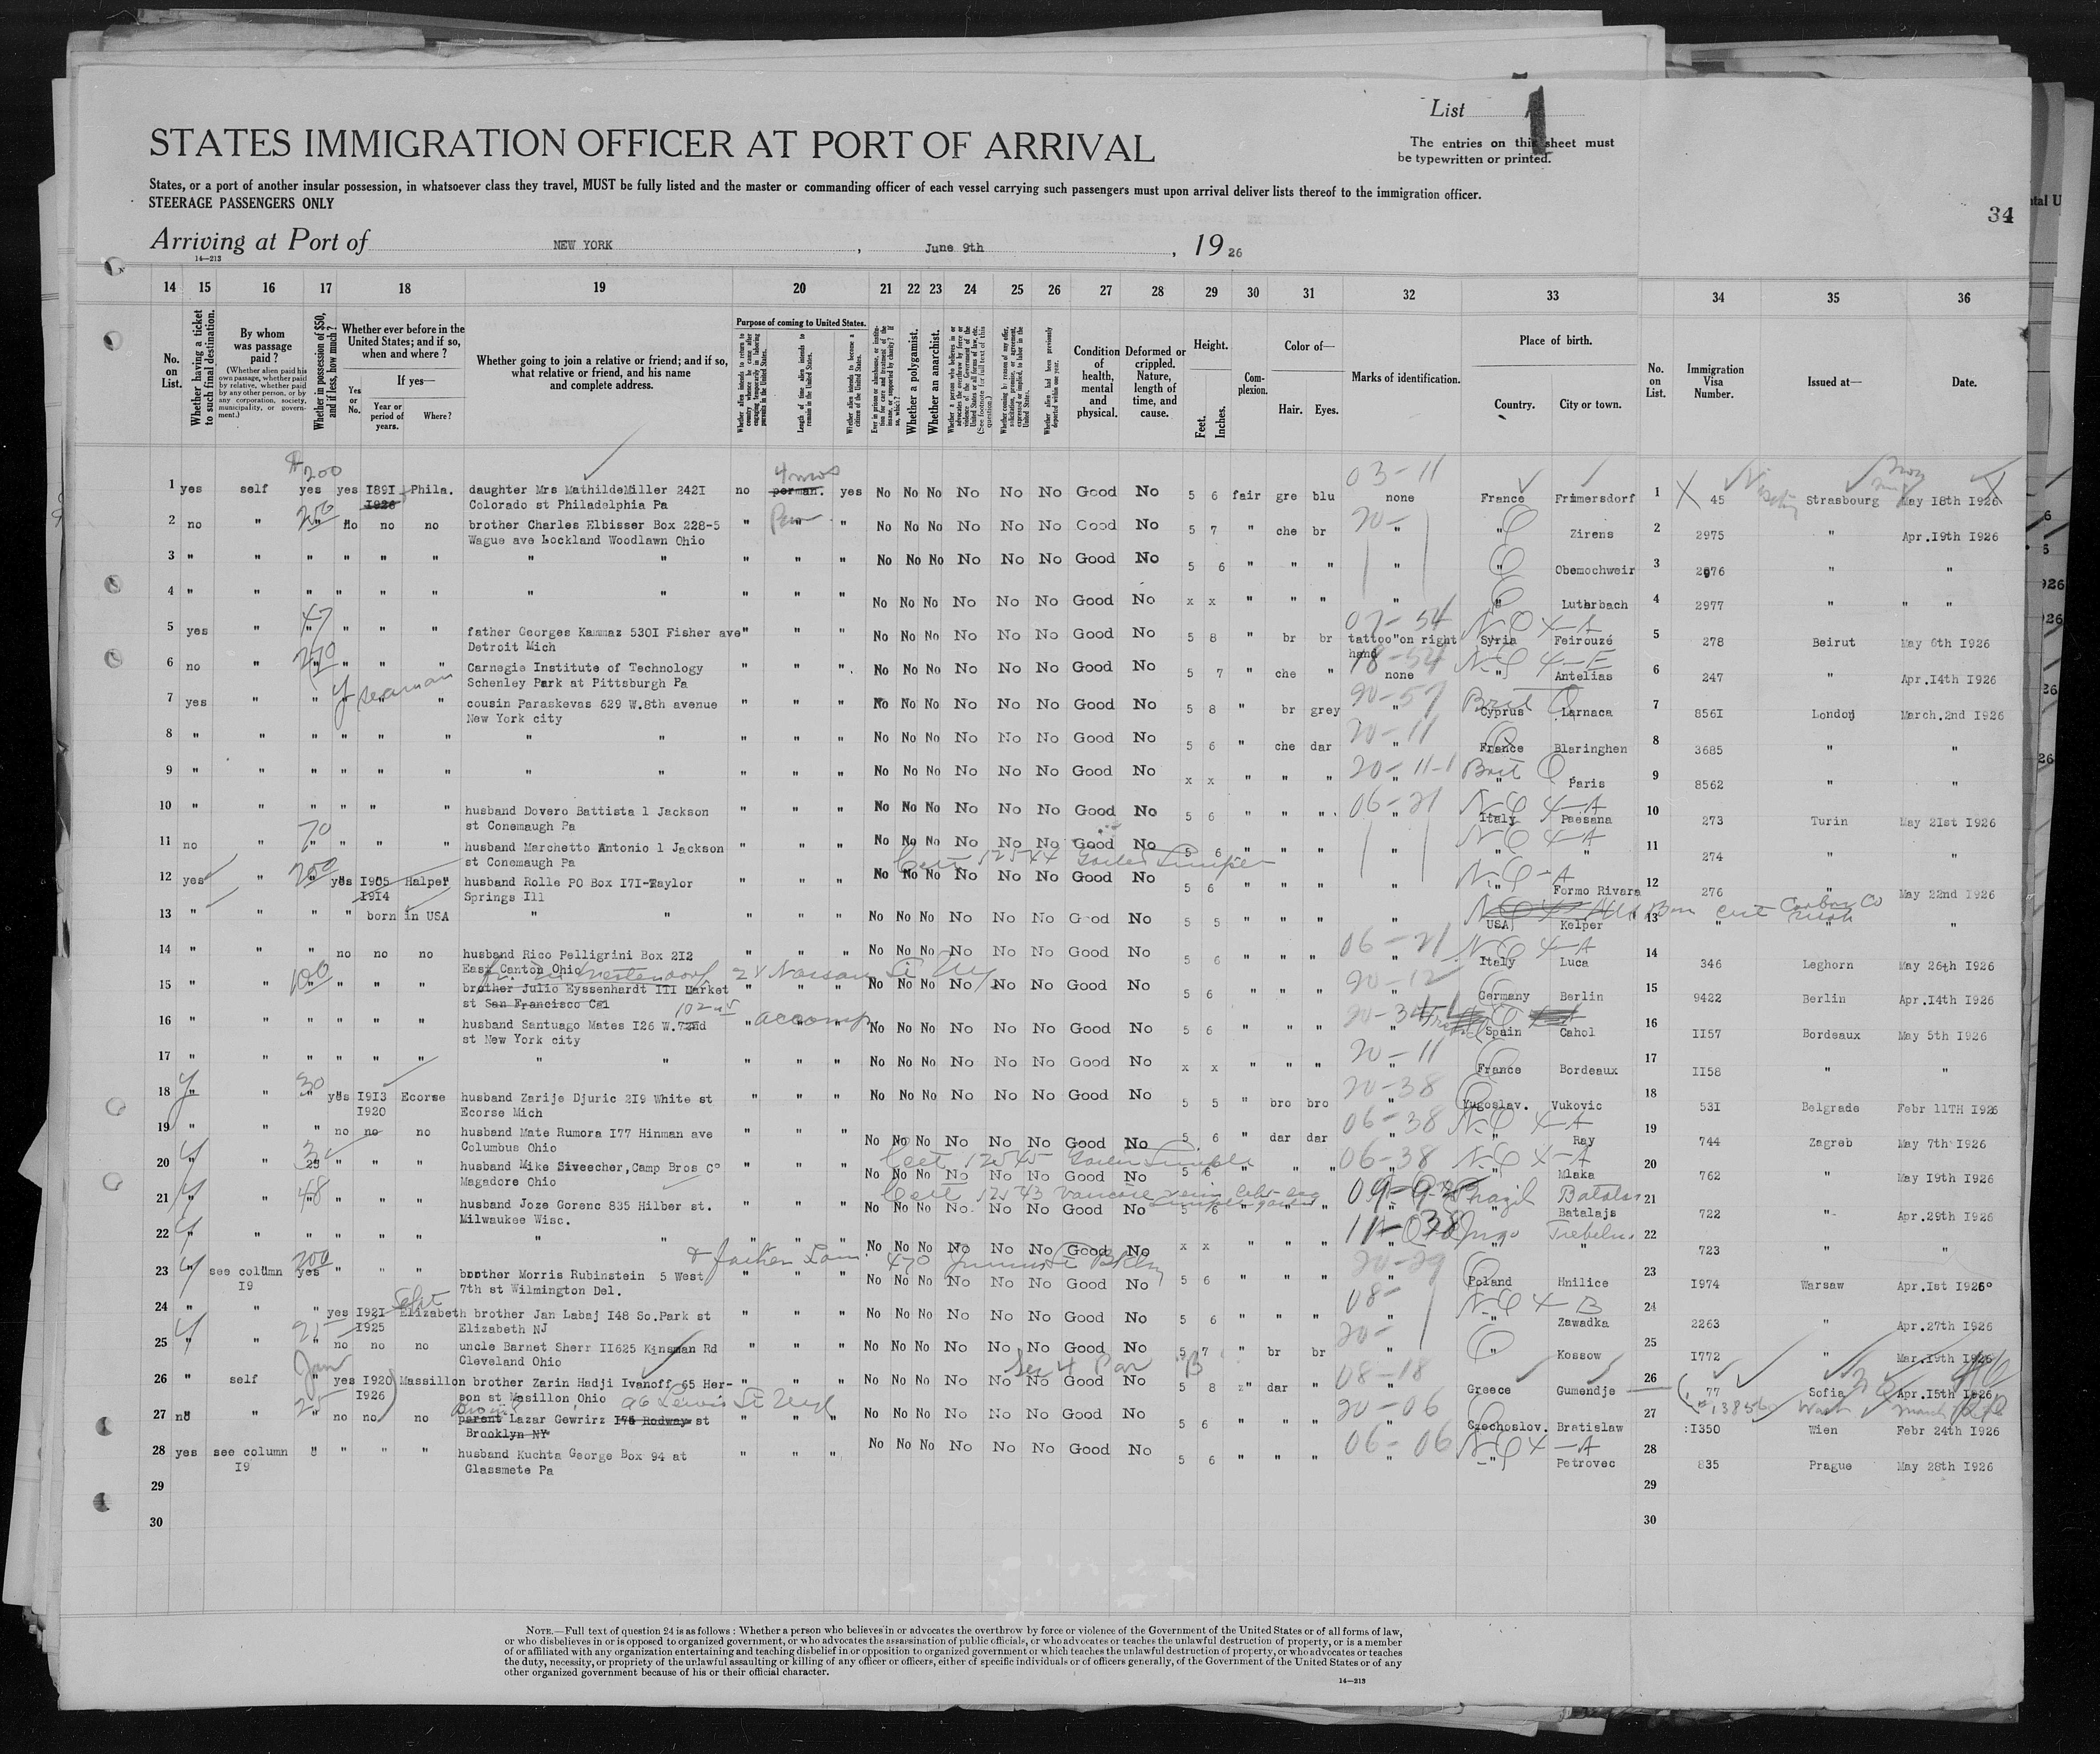 List 1
STATES IMMIGRATION OFFICER AT PORT OF ARRIVAL
The entries on this sheet must
be typewritten or printed.
States, or a port of another insular possession, in whatsoever class they travel, MUST be fully listed and the master or commanding officer of each vessel carrying such passengers must upon arrival deliver lists thereof to the immigration officer.
STEERAGE PASSENGERS ONLY
34
Arriving at Port of NEW YORK, June 9th, 1926
14—213
14 15 16 17 18 19 20 21 22 23 24 25 26 27 28 29 30 31 32 33 34 35 36
No. on List.
Whether having a ticket to such final destination.
By whom was passage paid?
(Whether alien paid his own passage, whether paid by relative, whether paid by any other person, or by any corporation, society, municipality, or government.)
Whether in possession of $50, and if less, how much?
Whether ever before in the United States; and if so, when and where?
Yes or No.
If yes—
Year or period of years.
Where?
Whether going to join a relative or friend; and if so, what relative or friend, and his name and complete address.
Purpose of coming to United States.
Length of time alien intends to remain in the United States.
Whether alien intends to become a citizen of the United States.
Whether a polygamist.
Whether an anarchist.
Condition of health, mental and physical.
Deformed or crippled. Nature, length of time, and cause.
Height.
Feet. Inches.
Complexion.
Color of—
Hair. Eyes.
Marks of identification.
Place of birth.
Country. City or town.
No. on List.
Immigration Visa Number.
Issued at—
Date.
$200 4 mos 03-11
1 yes self yes yes 1891 1926 Phila. daughter Mrs MathildeMiller 242I Colorado st Philadelphia Pa no perman. yes No No No No No No Good No 5 6 fair gre blu none France Frimersdorf 1 45 Strasbourg May 18th I926
2 no " 250 " No no no brother Charles Elbisser Box 228-5 Wague ave Lockland Woodlawn Ohio " " " No No No No No No Good No 5 7 " che br " " Zirens 2 2975 " Apr.I9th I926
3 " " " " " " " " " " " No No No No No No Good No 5 6 " " " " " Obemochweir 3 2976 " "
4 " " " " " " " " " " " No No No No No No Good No x x " " " " " Lutterbach 4 2977 " " "
5 yes " 47 " " " father Georges Kammaz 530I Fisher ave Detroit Mich " " " No No No No No No Good No 5 8 " br br 07-54 tattoo on right hand Syria Feirouzé 5 278 Beirut May 6th I926
6 no " 270 " " " Carnegie Institute of Technology Schenley Park at Pittsburgh Pa " " " No No No No No No Good No 5 7 " che " 18-54 none " Antelias 6 247 " Apr.I4th I926
7 yes " " y seaman " " cousin Paraskevas 629 W.8th avenue New York city " " " No No No No No No Good No 5 8 " br grey 20-57 " Cyprus Larnaca 7 856I London March.2nd I926
8 " " " " " " " " " " " No No No No No No Good No 5 6 " che dar 20-11 " France Blaringhen 8 3685 " "
9 " " " " " " " " " " " No No No No No No Good No x x " " " 20-11-1 Brit " Paris 9 8562 " "
10 " " " " " " husband Dovero Battista 1 Jackson st Conemaugh Pa " " " No No No No No No Good No 5 6 " " " 06-21 " Italy Paesana 10 273 Turin May 2Ist I926
11 no " 70 " " " husband Marchetto Antonio 1 Jackson st Conemaugh Pa " " " No No No No No No Good No 5 6 " " " " " " 11 274 " "
12 yes " 200 yes I905 I9I4 Halper husband Rolle PO Box I7I-Taylor Springs Ill " " " No No No No No No Good No 5 6 " " " " " Formo Rivara 12 276 " May 22nd I926
13 " " " " born in USA " " " " " No No No No No No Good No 5 5 " " " " USA Kelper 13 " " "
14 " " " no no no husband Rico Pelligrini Box 2I2 East Canton Ohio " " " No No No No No No Good No 5 6 " " " 06-21 " Italy Luca 14 346 Leghorn May 26th I926
15 " " 100 " " " brother Julio Eyssenhardt III Market st San Francisco Cal 24 Nassau St NY " " " No No No No No No Good No 5 6 " " " 20-12 Germany Berlin 15 9422 Berlin Apr.I4th I926
16 " " " " " " husband Santuago Mates I26 W.72nd st New York city " accomp No No No No No No Good No 5 6 " " " " Spain Cahol 16 II57 Bordeaux May 5th I926
17 " " " " " " " " " " " No No No No No No Good No x x " " " 20-11 " France Bordeaux 17 II58 " "
18 " " 30 yes I9I3 I920 Ecorse husband Zarije Djuric 2I9 White st Ecorse Mich " " " No No No No No No Good No 5 5 " bro bro 20-38 " Yugoslav. Vukovic 18 53I Belgrade Febr 11TH I926
19 " " " no no no husband Mate Rumora I77 Hinman ave Columbus Ohio " " " No No No No No No Good No 5 6 " dar dar 06-38 " " Ray 19 744 Zagreb May 7th I926
20 " " " " " " husband Mike Siveecher,Camp Bros Co Magadore Ohio " " " No No No No No No Good No 5 6 " " " 06-38 " " Mlaka 20 762 " May I9th I926
21 " " 48 " " " husband Joze Gorenc 835 Hilber st. Milwaukee Wisc. " " " No No No No No No Good No 5 6 " " " " Brazil Batalajs 21 722 " Apr.29th I926
22 " " " " " " " " " " " No No No No No No Good No x x " " " " " " 22 723 " "
23 " see column I9 200 yes " " " brother Morris Rubinstein 5 West 7th st Wilmington Del. " " " No No No No No No Good No 5 6 " " " 20-29 " Poland Hnilice 23 I974 Warsaw Apr.Ist I926
24 " " " yes I92I I925 Elizabeth brother Jan Labaj I48 So.Park st Elizabeth NJ " " " No No No No No No Good No 5 6 " " " 08- " Zawadka 24 2263 " Apr.27th I926
25 " " " no no no uncle Barnet Sherr II625 Kinsman Rd Cleveland Ohio " " " No No No No No No Good No 5 7 " br br 20- " Kossow 25 I772 " Mar.I9th I926
26 " self " yes I920 I926 Massillon brother Zarin Hadji Ivanoff 65 Herson st Masillon,Ohio " " " No No No No No No Good No 5 8 " dar " 08-18 Greece Gumendje 26 77 Sofia Apr.I5th I926
27 no " 25 no no no parent Lazar Gewrirz I76 Rodway st Brooklyn NY 96 Lewis St NY " " " No No No No No No Good No 5 6 " " " 20-06 " Czechoslov. Bratislaw 27 I350 Wien Febr 24th I926
28 yes see column I9 " " " " husband Kuchta George Box 94 at Glassmete Pa " " " No No No No No No Good No 5 6 " " " 06-06 " " Petrovec 28 835 Prague May 28th I926
29 29
30 30
NOTE.—Full text of question 24 is as follows: Whether a person who believes in or advocates the overthrow by force or violence of the Government of the United States or of all forms of law,
or who disbelieves in or is opposed to organized government, or who advocates the assassination of public officials, or who advocates or teaches the unlawful destruction of property, or is a member
of or affiliated with any organization entertaining and teaching disbelief in or opposition to organized government or which teaches the unlawful destruction of property, or who advocates or teaches
the duty, necessity, or propriety of the unlawful assaulting or killing of any officer or officers, either of specific individuals or of officers generally, of the Government of the United States or of any
other organized government because of his or their official character.
14—213